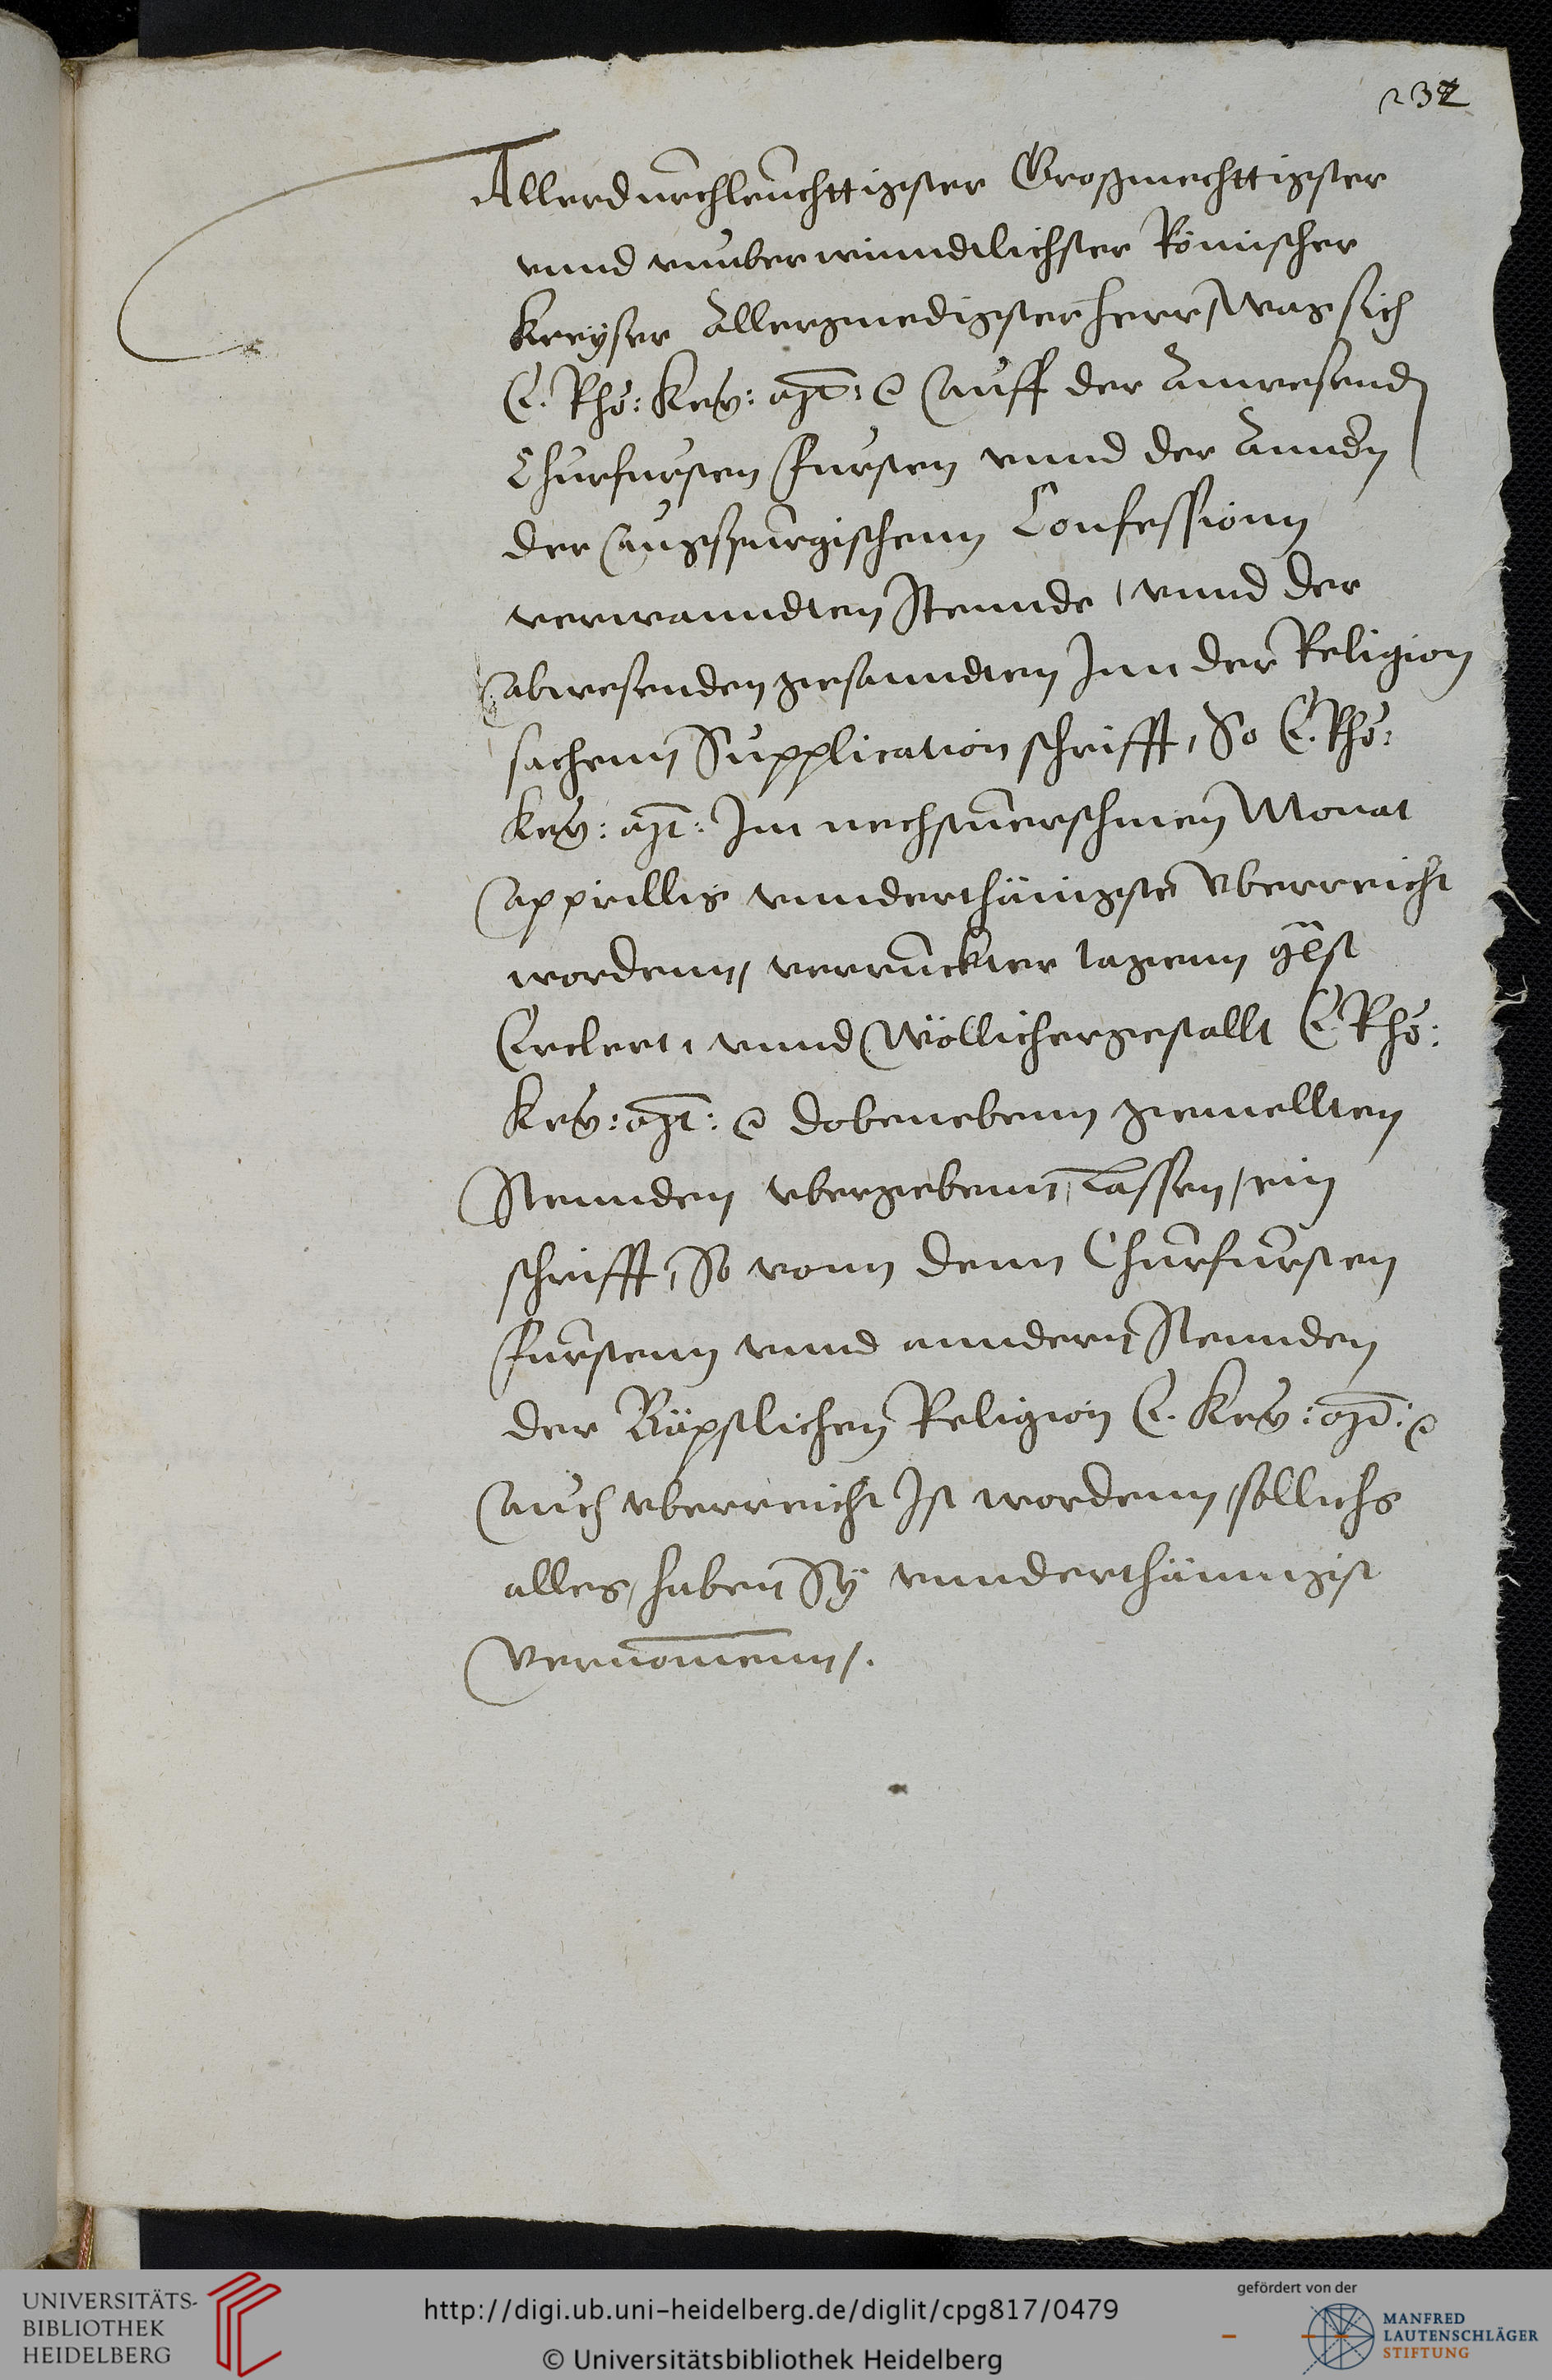 232
Allerdurchleuchttigster Großmechttigster
vnnd vnuberwindtlichster Römischer
Keyser Allergnedigster Herr, Was sich
E. Rhö: Key: Mt: auff der Anwesend
Churfursten Fursten vnnd der Anndern
der Augspurgischenn Confessionn
verwanndten Stennde, vnnd der
Abwesenden gesanndten Inn der Religion
sachenn Supplication schrifft, So E. Rhö:
Key: Mt: Im nechstuerschinen Monat
Apprillis vnnderthänigste Vberreicht
wordenn, verruckter tagenn
Erclert, vnnd Wöllichergestallt E. Rhö:
Key: Mt: dobenebenn gemellten
Stennden vbergebenn, Lassen, ein
schrifft, So vonn denn Churfursten
Furstenn vnnd anndern Stennden
der Bäpstlichen Religion E. Key: Mt:
Auch vberreicht Ist wordenn, sollichs
alles, haben Sy vnnderthännigist
Vernomenn/.
UNIVERSITÄTS-
BIBLIOTHEK
HEIDELBERG
http://digi.ub.uni-heidelberg.de/diglit/cpg817/0479
© Universitätsbibliothek Heidelberg
gefördert von der
MANFRED
LAUTENSCHLÄGER
STIFTUNG